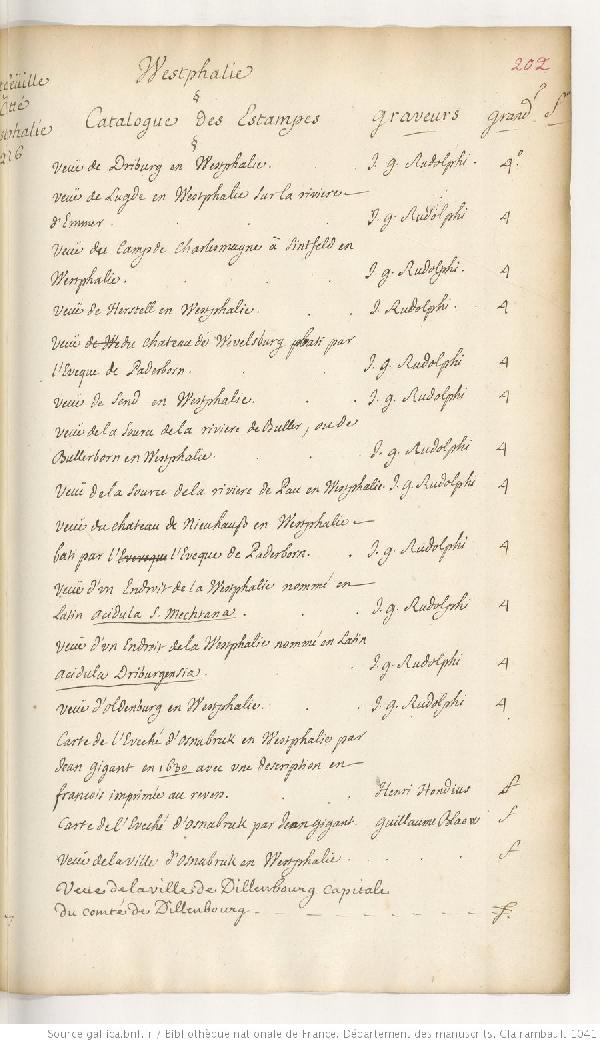 Westphalie 202
§
Catalogue des Estampes graveurs grandr f
§
Veüe de Driburg en Westphalie. J. g. Rudolphi. 4°
veüe de Lugde en Westphalie sur la riviere
d'Emmer. J. g. Rudolphi 4
Veüe du Camp de Charlemagne à Sintfeld en
Westphalie. J. g. Rudolphi. 4
Veüe de Herstell en Westphalie. J. Rudolphi. 4
Veüe de du chateau de Wevelsburg bati par
l'Eveque de Paderborn. J. g. Rudolphi 4
Veüe de Send en Westphalie. J. g. Rudolphi 4
Veüe de la Source de la riviere de Buller, ou de
Bullerborn en Westphalie. J. g. Rudolphi 4
Veüe de la Source de la riviere de Pau en Westphalie. J. g. Rudolphi 4
Veüe du chateau de Nieuhauss en Westphalie
bati par l'Eveveque l'Eveque de Paderborn. J. g. Rudolphi 4
Veüe d'vn Endroit de la Westphalie nommé en
Latin Acidula S. Mechtana. J. g. Rudolphi 4
Veüe d'vn Endroit de la Westphalie nommé en Latin
Acidula Driburgensia. J. g. Rudolphi 4
Veüe d'oldenburg en Westphalie. J. g. Rudolphi 4
Carte de l'Eveché d'Osnabruk en Westphalie par
Jean gigant en 1630 avec vne description en
francois imprimée au revers. Henri Hondius f
Carte de l'Eveché d'Osnabruk par Jean Gigant. Guillaume Blaew f
Veüe de la ville d'Osnabruk en Westphalie. f
Veue de la villes de Dillenbourg capitale
du comté de Dillenbourg f.
Source gallica.bnf.fr / Bibliothèque nationale de France. Département des manuscrits. Clairambault 1041